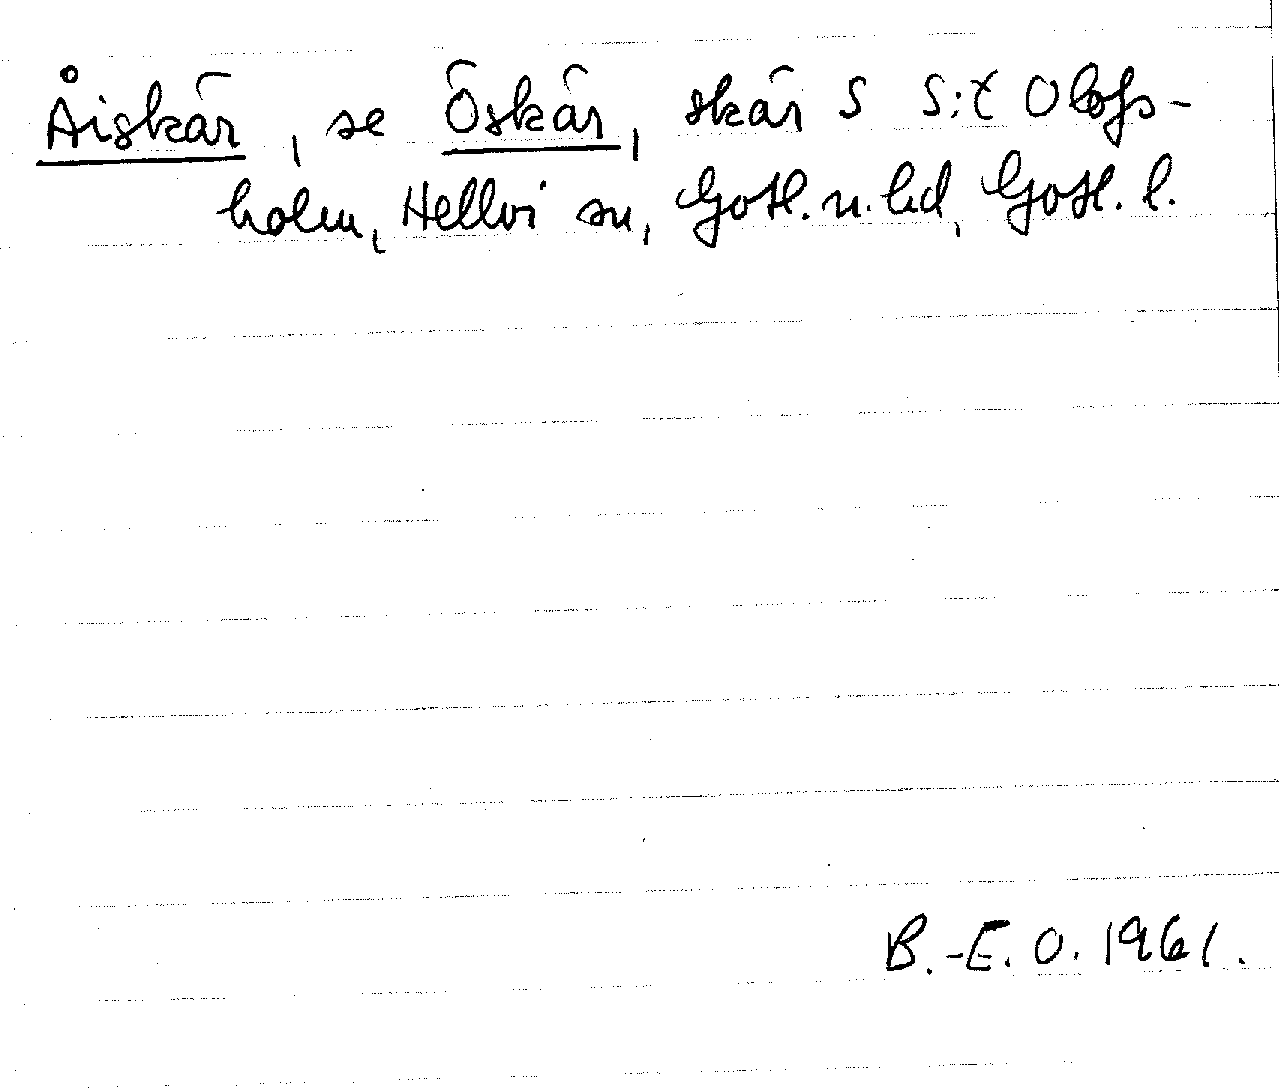 Åiskär, se Öskär, skär S S:t Olofs-
holm, Hellvi sn, Gotl. n. hd, Gotl. l.
B.-E. O. 1961.